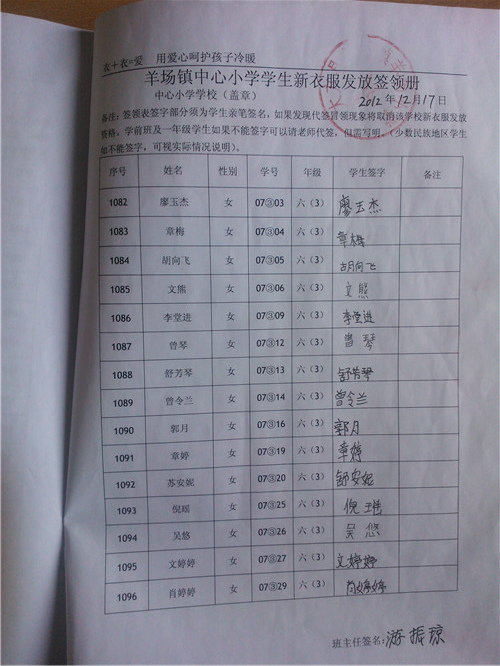 衣+衣=爱 用爱心呵护孩子冷暖
羊场镇中心小学学生新衣服发放签领册
中心小学学校（盖章） 2012年12月17日
备注：签领表签字部分须为学生亲笔签名，如果发现代签冒领现象将取消该学校新衣服发放
资格。学前班及一年级学生如果不能签字可以请老师代签，但需写明。（少数民族地区学生
如不能签字，可视实际情况说明）。
序号 姓名 性别 学号 年级 学生签字 备注
1082 廖玉杰 女 07③03 六（3） 廖玉杰
1083 章梅 女 07③04 六（3） 章梅
1084 胡向飞 女 07③05 六（3） 胡向飞
1085 文熊 女 07③06 六（3） 文熊
1086 李堂进 女 07③09 六（3） 李堂进
1087 曾琴 女 07③12 六（3） 曾琴
1088 舒芳琴 女 07③13 六（3） 舒芳琴
1089 曾令兰 女 07③14 六（3） 曾令兰
1090 郭月 女 07③16 六（3） 郭月
1091 章婷 女 07③19 六（3） 章婷
1092 苏安妮 女 07③20 六（3） 舒安妮
1093 倪瑶 女 07③25 六（3） 倪瑶
1094 吴悠 女 07③26 六（3） 吴悠
1095 文婷婷 女 07③27 六（3） 文婷婷
1096 肖婷婷 女 07③29 六（3） 肖婷婷
班主任签名：游振琼